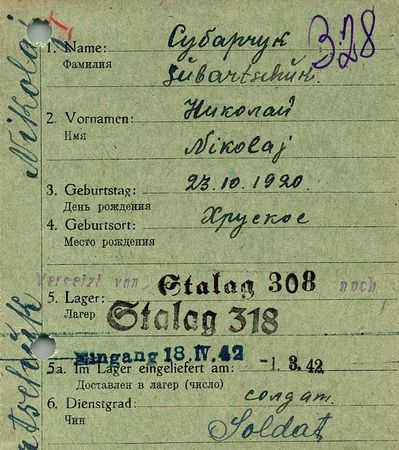 328
1. Name: Субарчук
Фамилия Subartschuk.
2. Vornamen: Николай
Имя Nikolaj
3. Geburtstag: 23.10.1920.
День рождения
4. Geburtsort: Хруское
Место рождения
Versetzt von Stalag 308 nach
5. Lager: Stalag 318
Лагер
Eingang 18. IV. 42
5a. Im Lager eingeliefert am: -1. 3. 42
Доставлен в лагер (число)
6. Dienstgrad: солдат.
Чин Soldat
Nikolaj